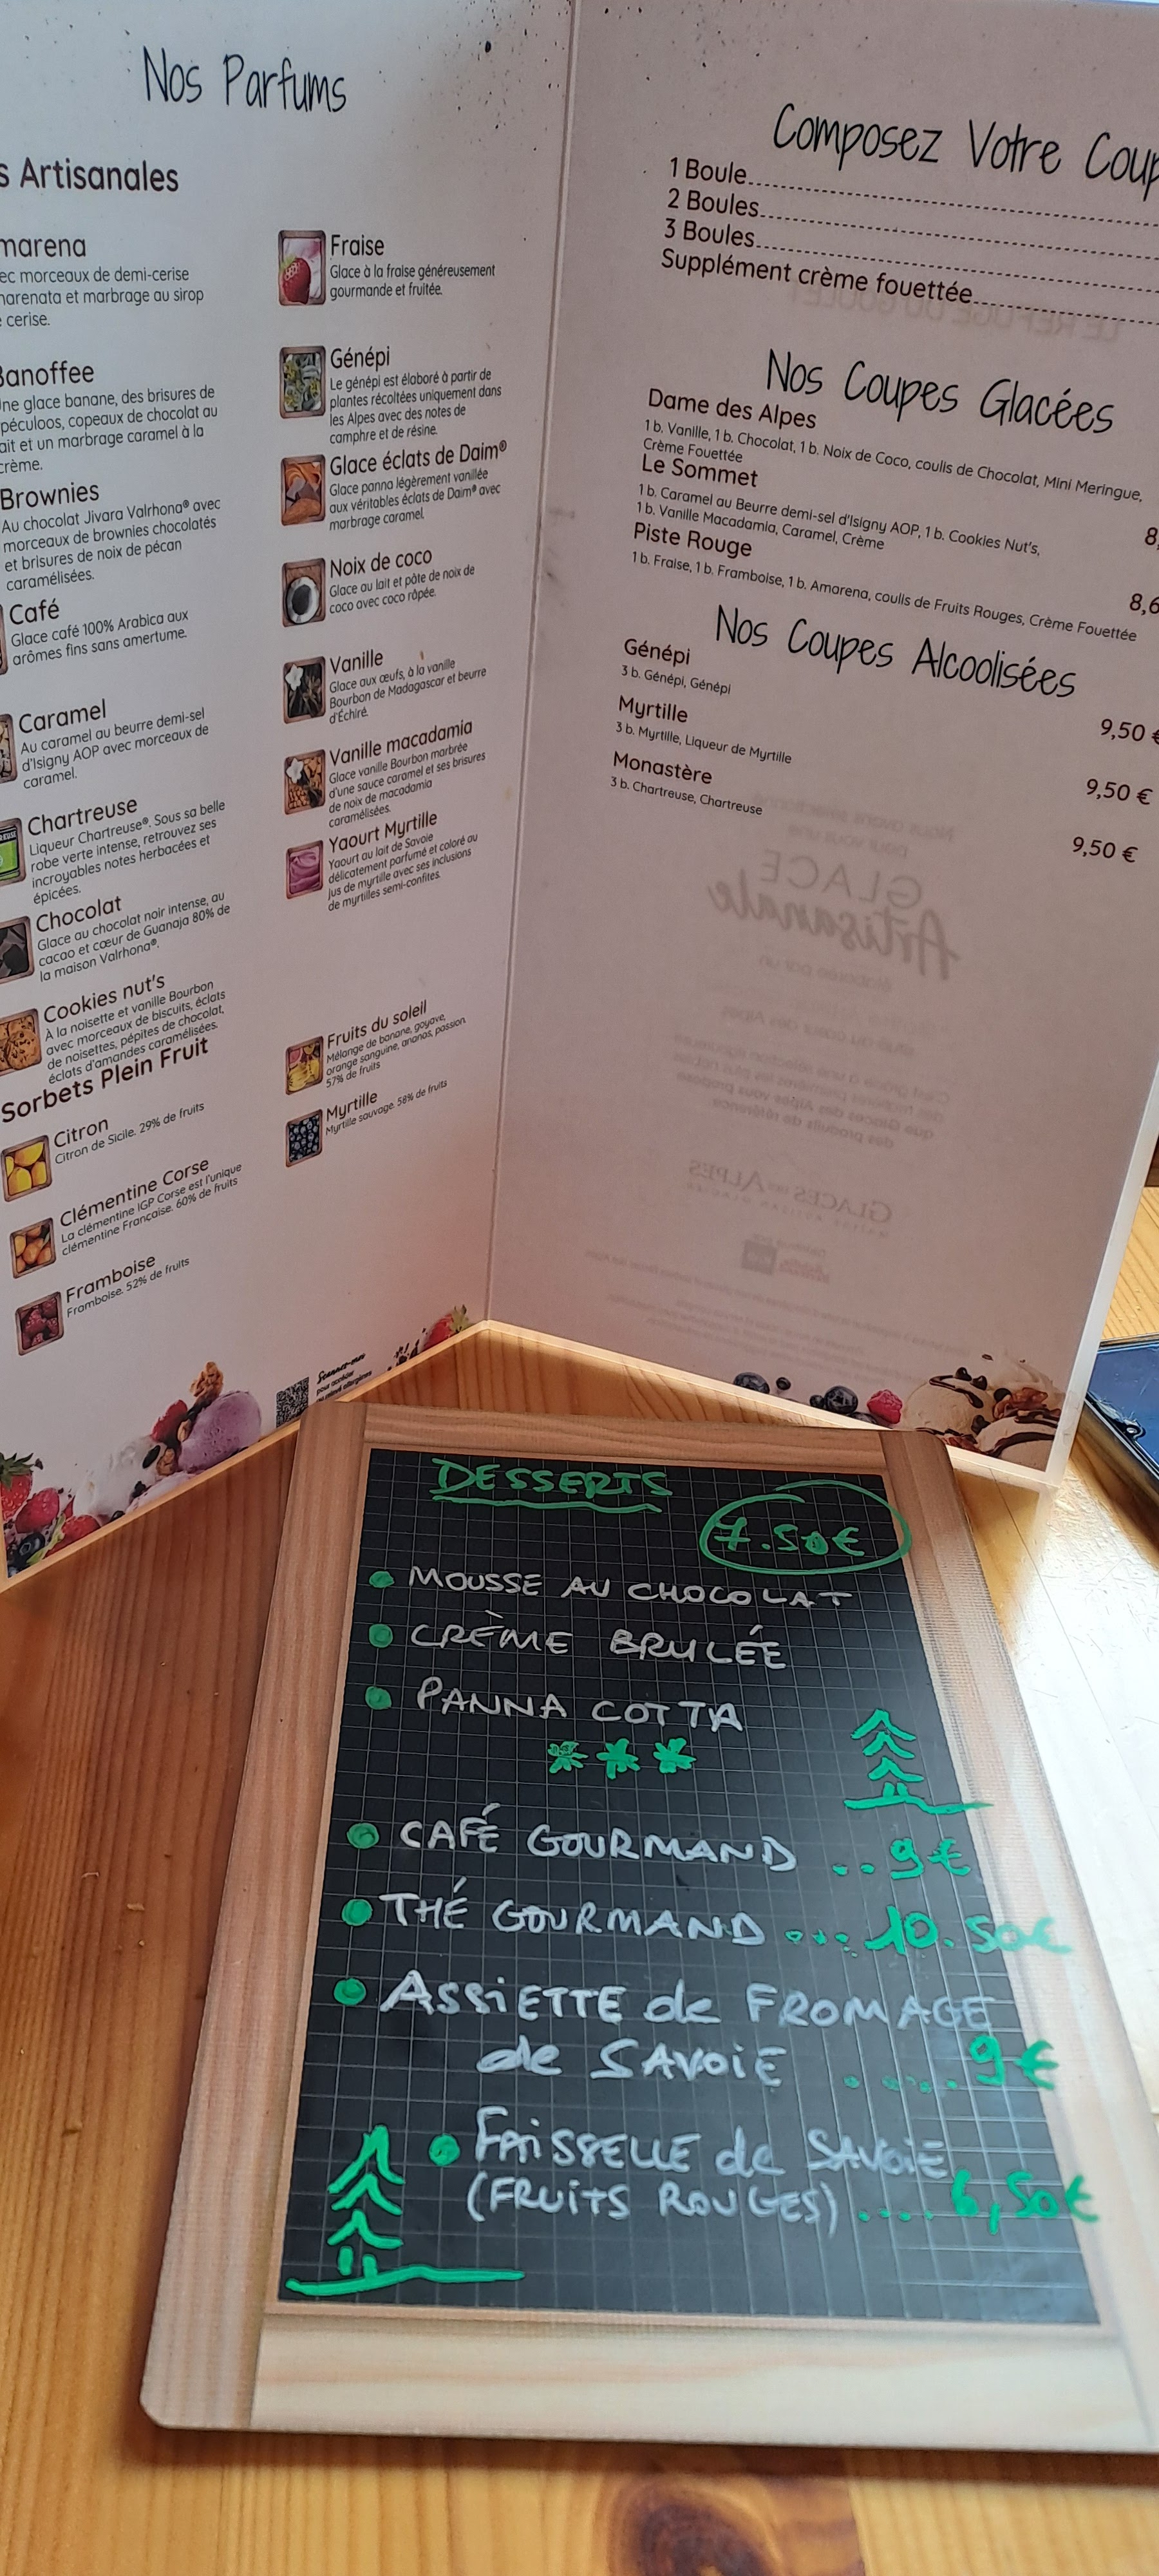 Nos Parfums
s Artisanales
marena
ec morceaux de demi-cerise
marenata et marbrage au sirop
cerise.
Banoffee
ne glace banane, des brisures de
péculoos, copeaux de chocolat au
ait et un marbrage caramel à la
crème.
Brownies
Au chocolat Jivara Valrhona® avec
morceaux de brownies chocolatés
et brisures de noix de pécan
caramélisées.
Café
Glace café 100% Arabica aux
arômes fins sans amertume.
Caramel
Au caramel au beurre demi-sel
d'Isigny AOP avec morceaux de
caramel.
Chartreuse
Liqueur Chartreuse®. Sous sa belle
robe verte intense, retrouvez ses
incroyables notes herbacées et
épicées.
Chocolat
Glace au chocolat noir intense, au
cacao et cœur de Guanaja 80% de
la maison Valrhona®.
Cookies nut's
À la noisette et vanille Bourbon
avec morceaux de biscuits, éclats
de noisettes, pépites de chocolat,
éclats d'amandes caramélisées.
Fraise
Glace à la fraise généreusement
gourmande et fruitée.
Génépi
Le génépi est élaboré à partir de
plantes récoltées uniquement dans
les Alpes avec des notes de
camphre et de résine.
Glace éclats de Daim®
Glace panna légèrement vanillée
aux véritables éclats de Daim® avec
marbrage caramel.
Noix de coco
Glace au lait et pâte de noix de
coco avec coco râpée.
Vanille
Glace aux œufs, à la vanille
Bourbon de Madagascar et beurre
d'Échiré.
Vanille macadamia
Glace vanille Bourbon marbrée
d'une sauce caramel et ses brisures
de noix de macadamia
caramélisées.
Yaourt Myrtille
Yaourt au lait de Savoie
délicatement parfumé et coloré au
jus de myrtille avec ses inclusions
de myrtilles semi-confites.
Sorbets Plein Fruit
Citron
Citron de Sicile. 29% de fruits
Clémentine Corse
La clémentine IGP Corse est l'unique
clémentine Française. 60% de fruits
Framboise
Framboise. 52% de fruits
Fruits du soleil
Mélange de banane, goyave,
orange sanguine, ananas, passion.
57% de fruits
Myrtille
Myrtille sauvage. 58% de fruits
Scannez-moi
pour accéder
Composez Votre Coup
1 Boule
2 Boules
3 Boules
Supplément crème fouettée
Nos Coupes Glacées
Dame des Alpes
1 b. Vanille, 1 b. Chocolat, 1 b. Noix de Coco, coulis de Chocolat, Mini Meringue,
Crème Fouettée
Le Sommet
1 b. Caramel au Beurre demi-sel d'Isigny AOP, 1 b. Cookies Nut's,
1 b. Vanille Macadamia, Caramel, Crème
8,
Piste Rouge
1 b. Fraise, 1 b. Framboise, 1 b. Amarena, coulis de Fruits Rouges, Crème Fouettée
8,6
Nos Coupes Alcoolisées
Génépi
3 b. Génépi, Génépi
9,50 €
Myrtille
3 b. Myrtille, Liqueur de Myrtille
9,50 €
Monastère
3 b. Chartreuse, Chartreuse
9,50 €
GLACE
Artisanale
GLACES DES ALPES
DESSERTS
7.50€
MOUSSE AU CHOCOLAT
CRÈME BRULÉE
PANNA COTTA
CAFÉ GOURMAND ..9€
THÉ GOURMAND ....10.50€
ASSiETTE de FROMAGE
de SAVOiE .....9€
FAiSSELLE de SAVOiE
(FRUiTS ROUGES) ....6,50€